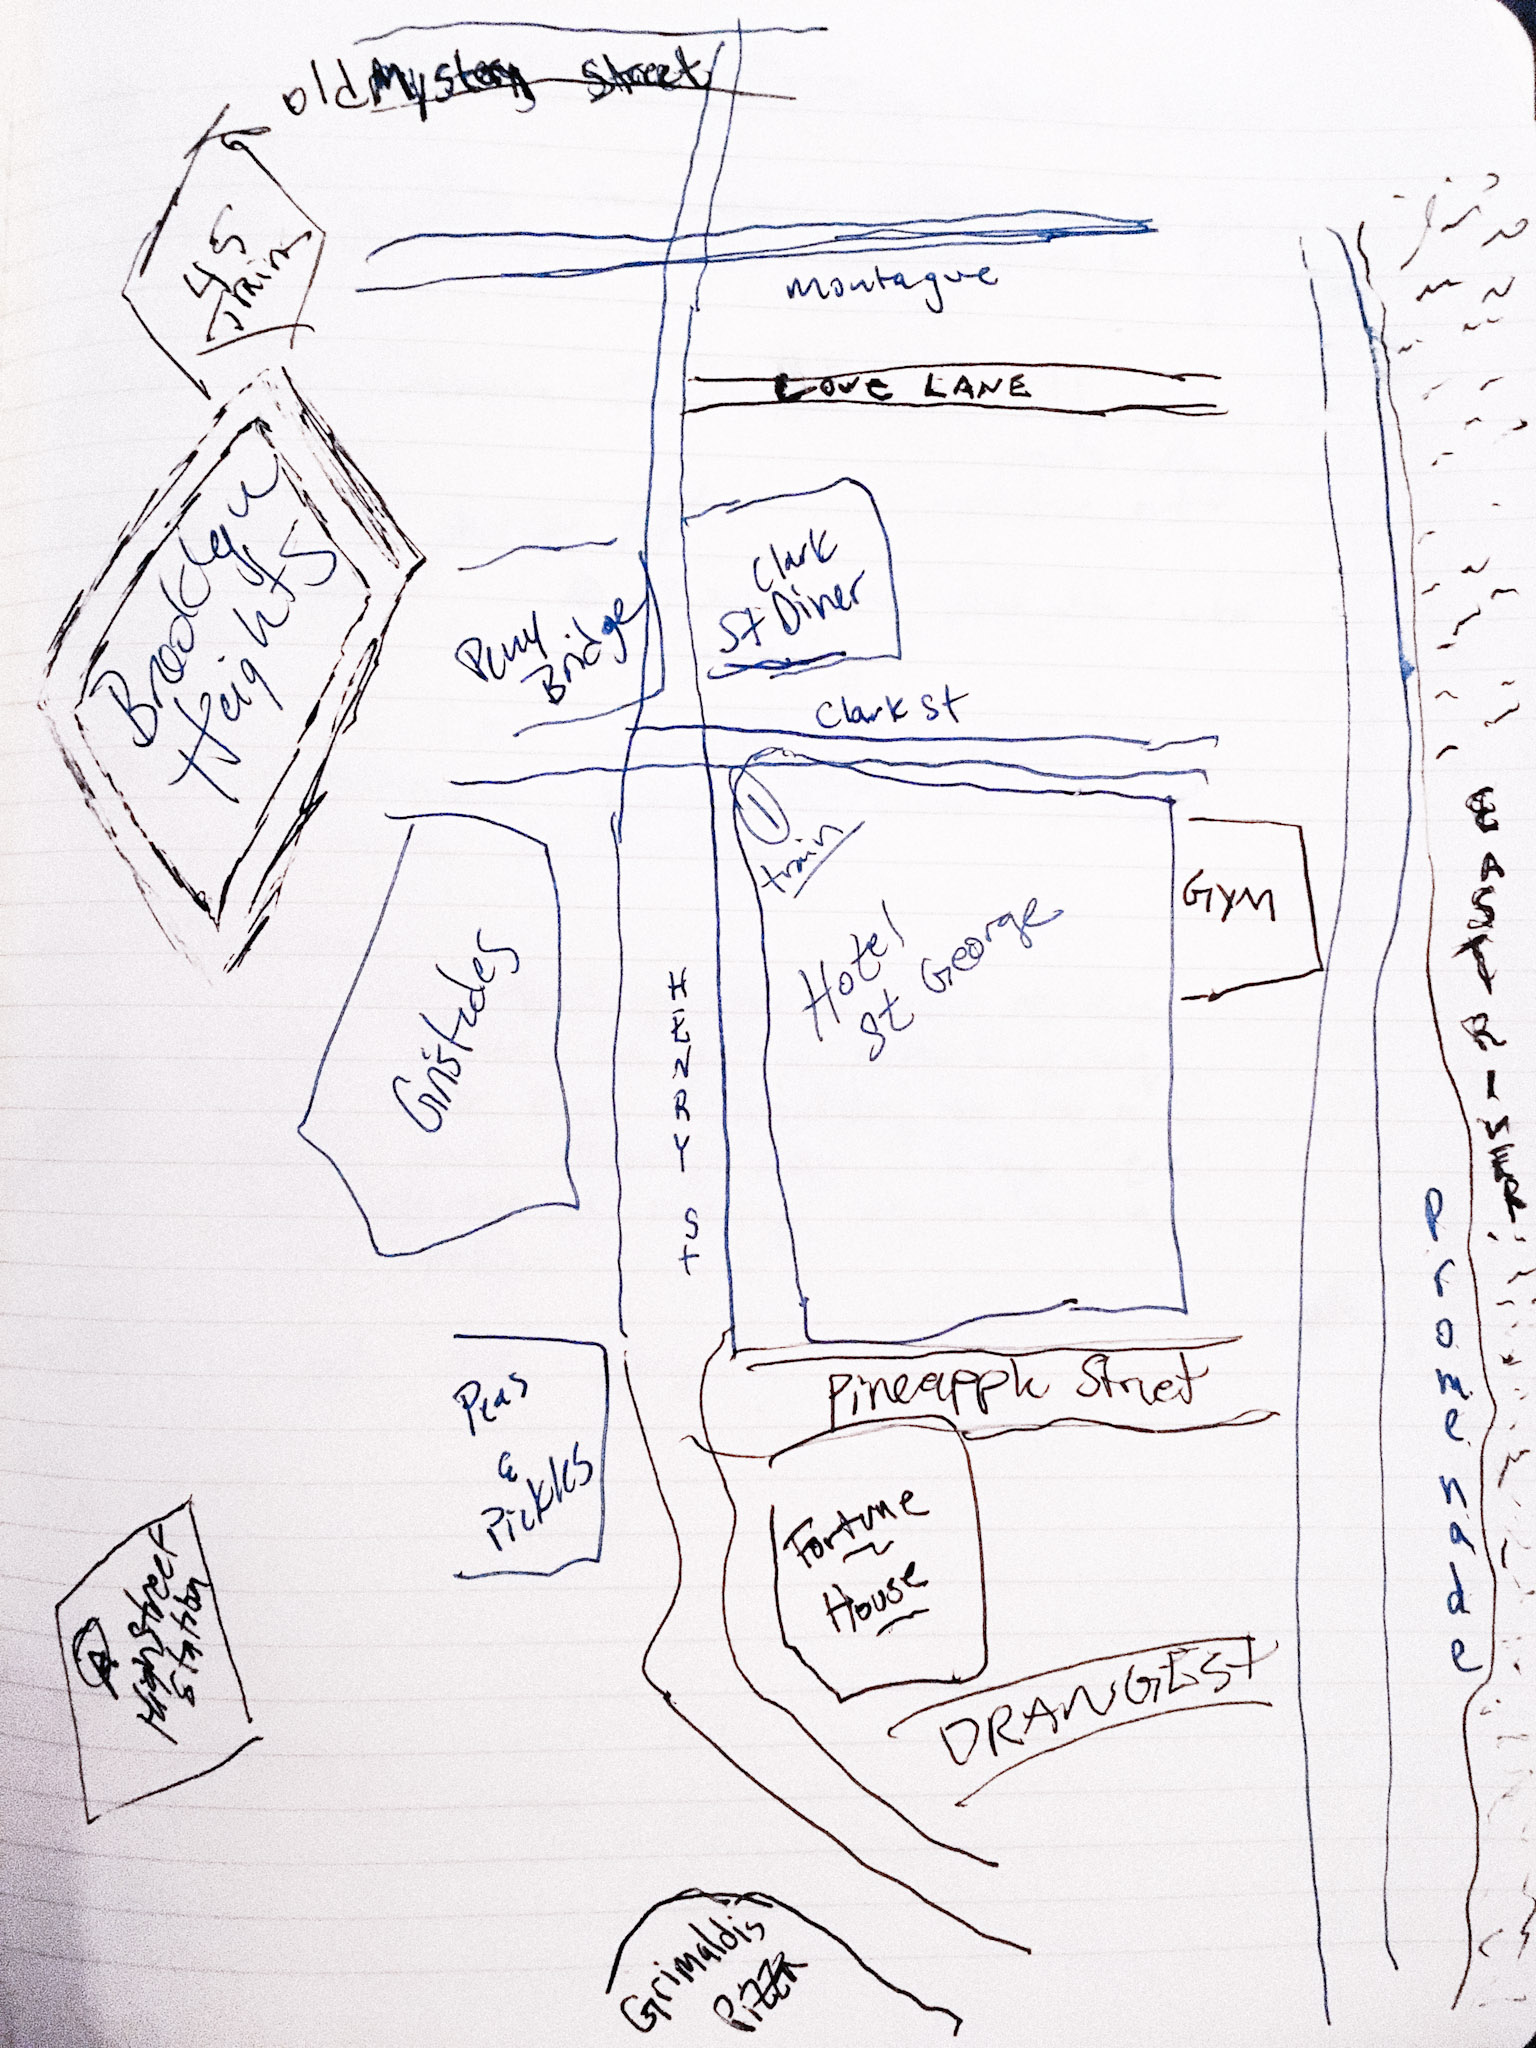 old Mystery Street
4 5
trains
Montague
LOVE LANE
Brooklyn
Heights
Clark
St Diner
Penny
Bridge
Clark St
1
train
Hotel
St George
GYM
Gristedes
HENRY ST
EAST RIVER
Promenade
Pineapple Street
Peas
&
Pickles
Fortune
House
ORANGE ST
A
High Street
Station
Grimaldis
Pizza